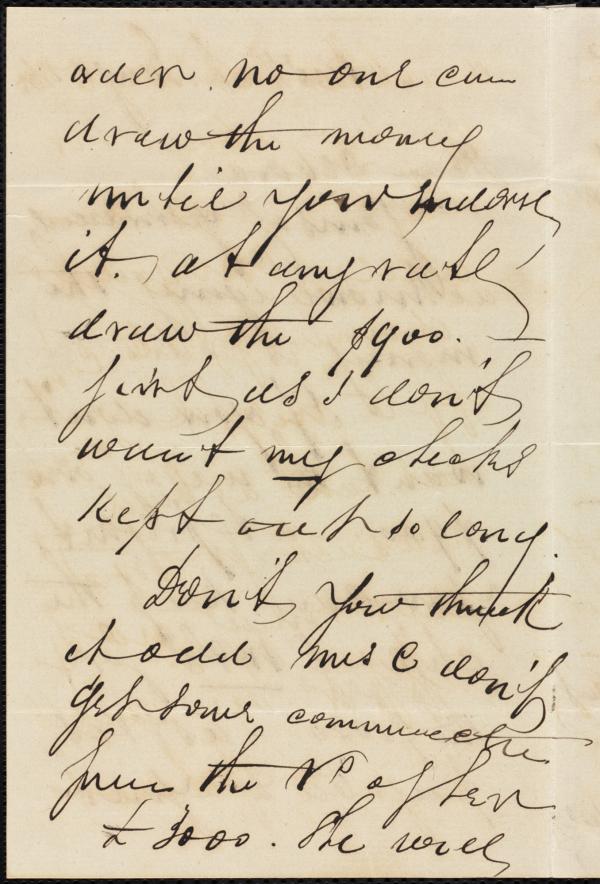 order. no one can
draw the money
until you indorse
it. at any rate
draw the $900. —
first, as I don't
want my checks
kept out so long.
Don't you think
it odd Mrs C don't
get some
from the VP after
3000. She will